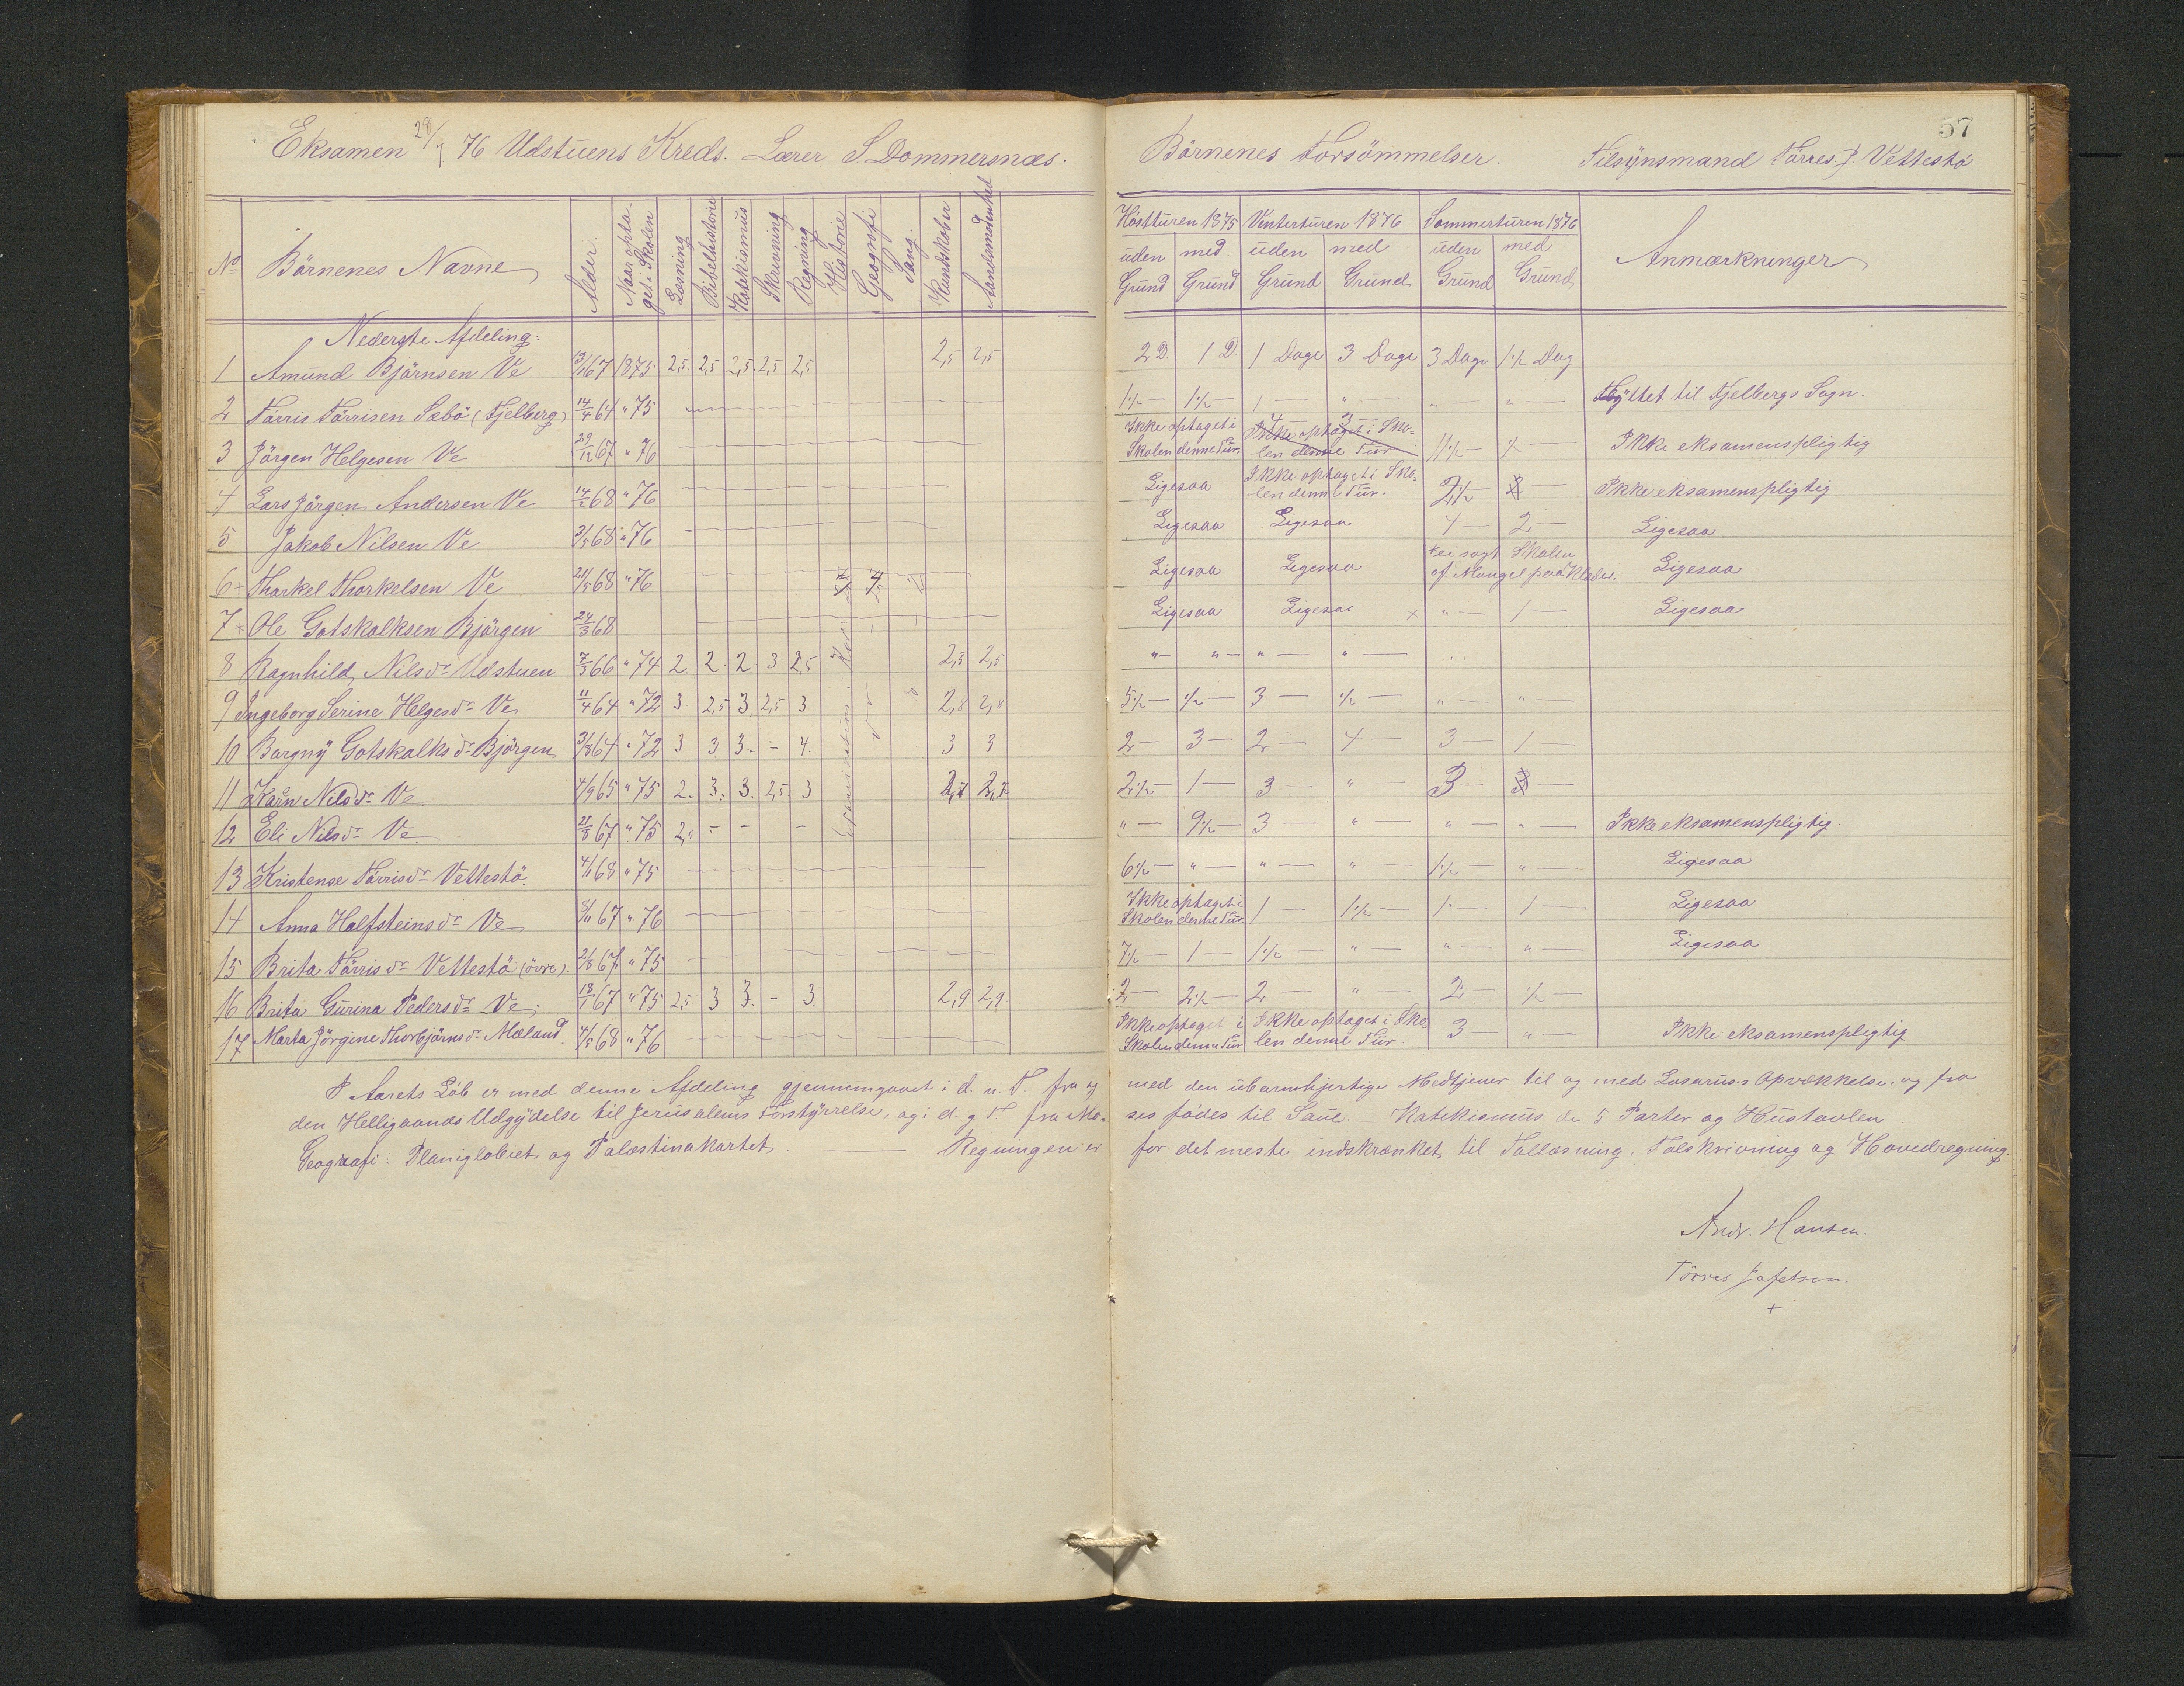 Eksamen 28/7 76 Udstuens Kreds. Lærer S. Dommersnæs.
No Börnenes Navne Alder Naar optaget i Skolen Læsning Bibelhistorie Katekismus Skrivning Regning Historie Geografi Sang. Kundskaber Aandsmodenhed
Nederste Afdeling.
1 Amund Björnsen Ve 13/1 67 1875 2,5 2,5 2,5 2,5 2,5 2,5 2,5
2 Törris Törrisen Sæbö (Fjelberg) 14/4 64 " 75
3 Jörgen Helgesen Ve 29/12 67 " 76
4 Lars Jörgen Andersen Ve 14/2 68 " 76
5 Jakob Nilsen Ve 3/5 68 " 76
6 Thorkel Thorkelsen Ve 21/5 68 " 76
7 Ole Gotskalksen Bjørgen 24/3 68
8 Ragnhild Nilsdr Udstuen 7/3 66 " 74 2. 2. 2. 3 2,5 2,5 2,5
9 Ingeborg Serine Helgesdr Ve 11/4 64 " 72 3. 2,5 3. 2,5 3 2,8 2,8
10 Bargny Gotskalksdr Bjørgen 31/8 64 " 72 3 3. 3. - 4. 3 3
11 Karn Nilsdr Ve 4/9 65 " 75 2. 3. 3. 2,5 3 2,7 2,7
12 Eli Nilsdr Ve 21/8 67 " 75 2,5 - - -
13 Kristense Törrisdr Vettestö. 4/1 68 " 75
14 Anna Halfsteinsdr Ve 8/11 67 " 76
15 Brita Törrisdr Vettestö (övre). 2/8 67 " 75
16 Brita Gurina Pedersdr Ve 18/1 67 " 75 2,5 3 3. - 3. 2,9 2,9
17 Marta Jörgine Thorbjörnsdr Mæland. 4/5 68 " 76
I Aarets Löb er med denne Afdeling gjennemgaaet i d. n. T. fra og
den Helligaands Udgydelse til Jerusalems Forstyrrelse, og i d. g. T. fra Mo-
Geografi: Planiglobiet og Palæstinakartet. Regningen er
57
Börnenes Forsömmelser. Tilsynsmand Törres J. Vettestö
Höstturen 1875 Vinterturen 1876 Sommerturen 1876 Anmærkninger
uden Grund med Grund uden Grund med Grund uden Grund med Grund
2 D. 1 D. 1 Dage 3 Dage 3 Dage 1 1/2 Dag
1 1/2 — 1 1/2 — 1 — " — " — " — Flyttet til Fjelbergs Sogn.
Ikke optaget i Skolen denne Tur. 4 — 3 — Ikke optaget i Skolen denne Tur 11 1/2 — 1/2 — Ikke eksamenspligtig
Ligesaa Ikke optaget i Skolen denne Tur. 2 1/2 — Ikke eksamenspligtig
Ligesaa Ligesaa 4 — 2 — Ligesaa
Ligesaa Ligesaa ei søgt Skolen af Mangel paa Klæder. Ligesaa
Ligesaa Ligesaa × " — 1 — Ligesaa
" — " — " — " —
5 1/2 — 1/2 — 3 — 1/2 — " — " —
2 — 3 — 2 — 4 — 3 — 1 —
2 1/2 — 1 — 3 — " — 3 —
" — 9 1/2 — 3 — " — " — " — Ikke eksamenspligtig.
6 1/2 — " — " — " — 1 1/2 — " — Ligesaa
Ikke optaget i Skolen denne Tur 1 — 1 1/2 — 1 — 1 — Ligesaa
7 1/2 — 1 — 1 1/2 — " — " — " — Ligesaa
2 — 2 1/2 — 2 — " — 2 — 1/2 —
Ikke optaget i Skolen denne Tur Ikke optaget i Skolen denne Tur. 3 — " — Ikke eksamenspligtig
med den ubarmhjertige Medtjener til og med Lasarus's Opvækkelse, og fra
ses födes til Saul. Katekismus de 5 Parter og Hustavlen
for det meste indskrænket til Tallæsning, Talskrivning og Hovedregning.
Andr. Hansen.
Törres Jafetsen.
+